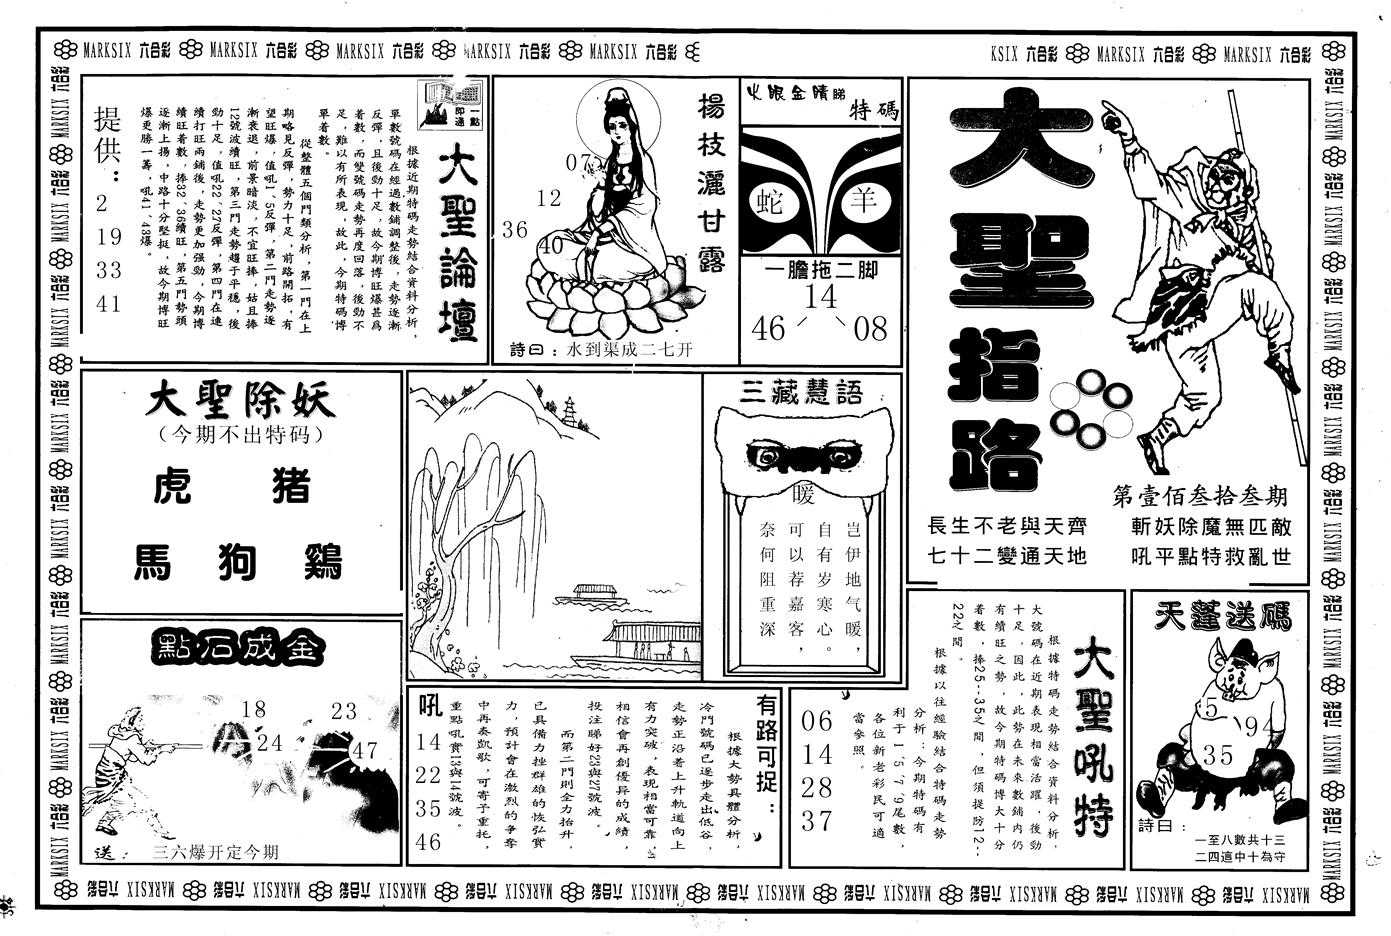 MARKSIX 六合彩 MARKSIX 六合彩 MARKSIX 六合彩 MARKSIX 六合彩 MARKSIX 六合彩
KSIX 六合彩 MARKSIX 六合彩 MARKSIX 六合彩
大聖指路
第壹佰叁拾叁期
長生不老與天齊
七十二變通天地
斬妖除魔無匹敵
吼平點特救亂世
火眼金睛睇特碼
蛇
羊
一膽拖二脚
14
46
08
楊枝灑甘露
07
12
36
40
詩曰：水到渠成二七开
一點即通
大聖論壇
根據近期特碼走勢結合資料分析，
單數號碼在經過數鋪調整後，走勢逐漸
反彈，且後勁十足，故今期博旺爆甚爲
着數，而雙號碼走勢再度回落，後勁不
足，難以有所表現，故此，今期特碼博
單着數。
從整體五個門類分析，第一門在上
期略見反彈，勢力十足，前路開拓，有
望旺爆，值吼1、5反彈，第二門走勢逐
漸衰退，前景暗淡，不宜旺捧，姑且捧
12號波續旺，第三門走勢趨于平穩，後
勁十足，值吼22、27反彈，第四門在連
續打旺兩鋪後，走勢更加强勁，今期博
續旺着數，捧32、36續旺，第五門勢頭
逐漸上揚，中路十分堅挺，故今期博旺
爆更勝一籌，吼41、43爆。
提供：
2
19
33
41
大聖除妖
（今期不出特码）
虎 猪
馬 狗 鷄
三藏慧語
暖
岂伊地气暖，
自有岁寒心。
可以荐嘉客，
奈何阻重深
點石成金
18
23
24
47
送： 三六爆开定今期
有路可捉：
根據大勢具體分析，
冷門號碼已逐步走出低谷，
走勢正沿着上升軌道向上
有力突破，表現相當可靠，
相信會再創優异的成績，
投注睇好23與27號波。
而第二門則全力抬升，
已具備力挫群雄的恢弘實
力，預計會在激烈的争奪
中再奏凱歌，可寄予重托，
重點吼實13與14號波。
吼
14
22
35
46
大聖吼特
根據特碼走勢結合資料分析，
大號碼在近期表現相當活躍，後勁
十足，因此，此勢在未來數鋪内仍
有續旺之勢，故今期特碼博大十分
着數，捧25--35之間，但須提防12--
22之間。
根據以往經驗結合特碼走勢
分析：今期特碼有
利于1、5、7、9尾數，
各位新老彩民可適
當參照。
06
14
28
37
天蓬送碼
5
94
35
詩曰：
一至八數共十三
二四這中十為守